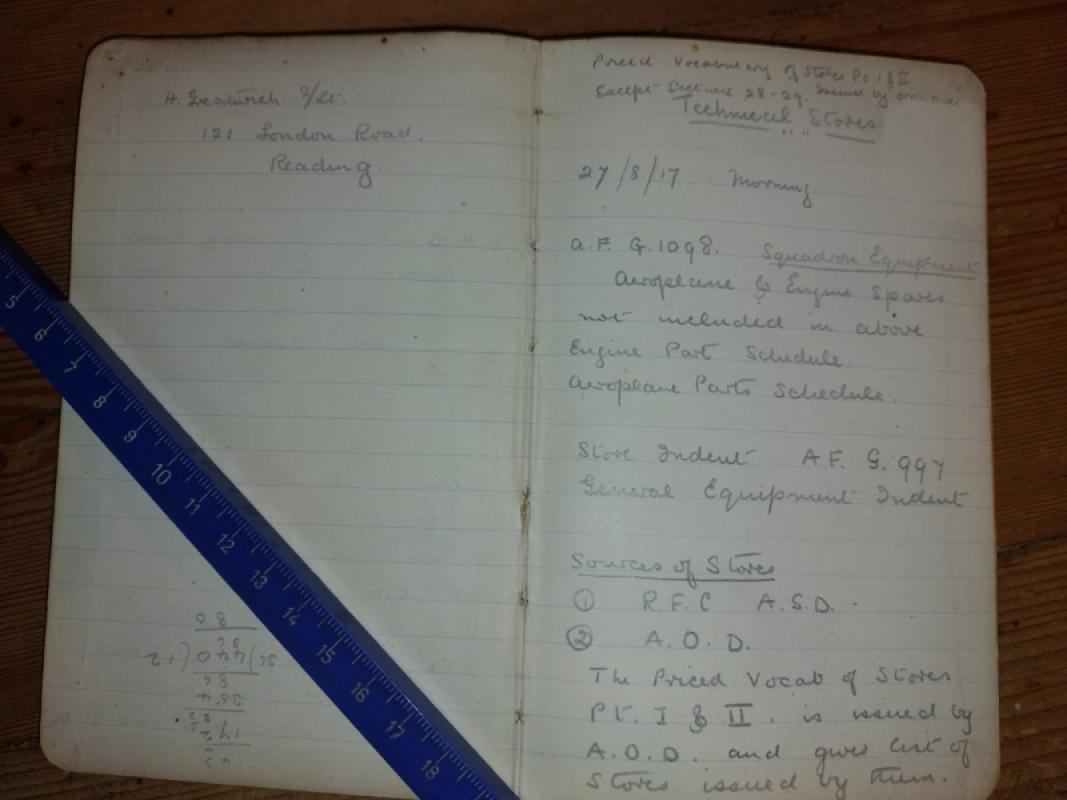 H. Greatwich 2/Lt.
121 London Road.
Reading
Priced Vocabulary of Stores Pt. I & II
Except Sections 28-29. Issued by ordnance
Technical Stores
27/8/17 Morning
A.F. G.1098. Squadron Equipment
Aeroplane & Engine Spares
not included in above
Engine Part Schedule.
Aeroplane Parts Schedule.
Store Indent A F. G. 997
General Equipment Indent
Sources of Stores
① R.F.C A.S.D.
② A.O.D.
The Priced Vocab of Stores
Pt. I & II. is issued by
A.O.D. and gives list of
Stores issued by them.
5
6
7
8
9
10
11
12
13
14
15
16
17
18